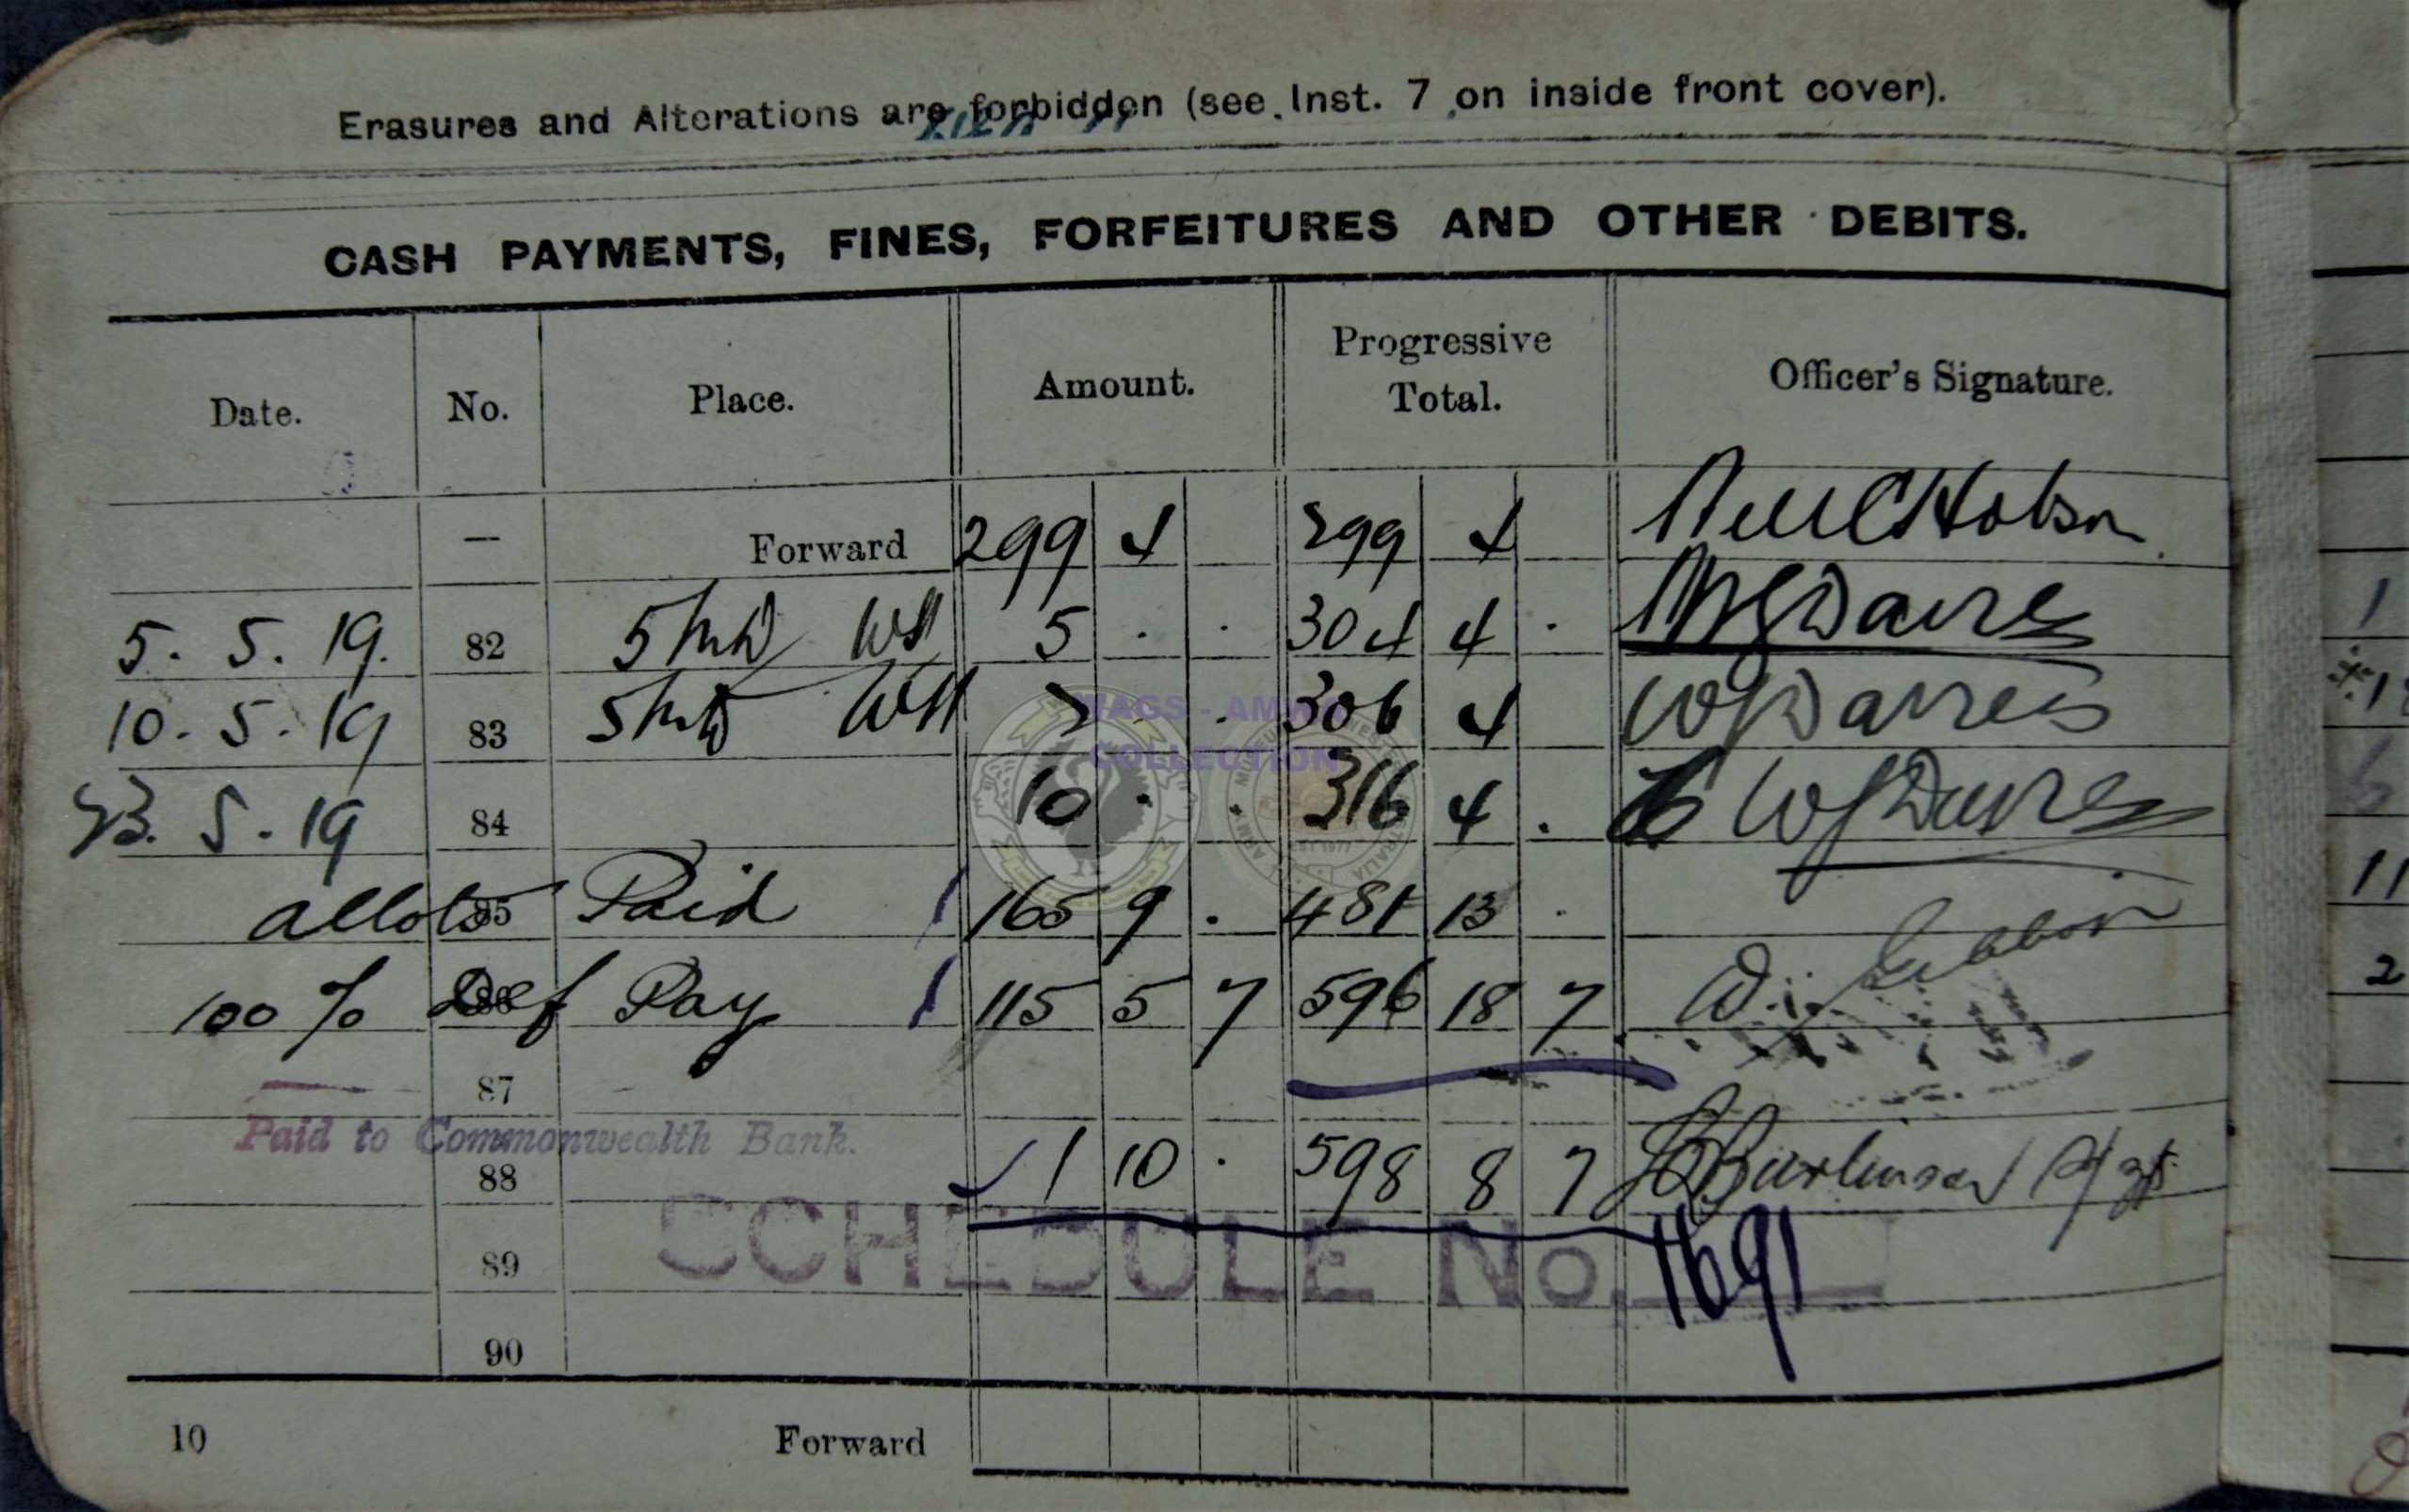 Erasures and Alterations are forbidden (see Inst. 7 on inside front cover).
CASH PAYMENTS, FINES, FORFEITURES AND OTHER DEBITS.
Date. No. Place. Amount. Progressive Total. Officer's Signature.
— Forward 299 4 299 4 Hobson
5. 5. 19. 82 5 5 . . 304 4 . Davies
10. 5. 19 83 2 . . 306 4 WJDavies
23. 5. 19 84 10 . . 316 4 . WJDavies
allots 85 Paid 165 9 . 481 13 .
100 % 86 Def Pay 115 5 7 596 18 7
87
Paid to Commonwealth Bank.
88 1 10 . 598 8 7
SCHEDULE No. 1691
89
90
10 Forward
WAGS - AMMA
COLLECTION
1
11
2